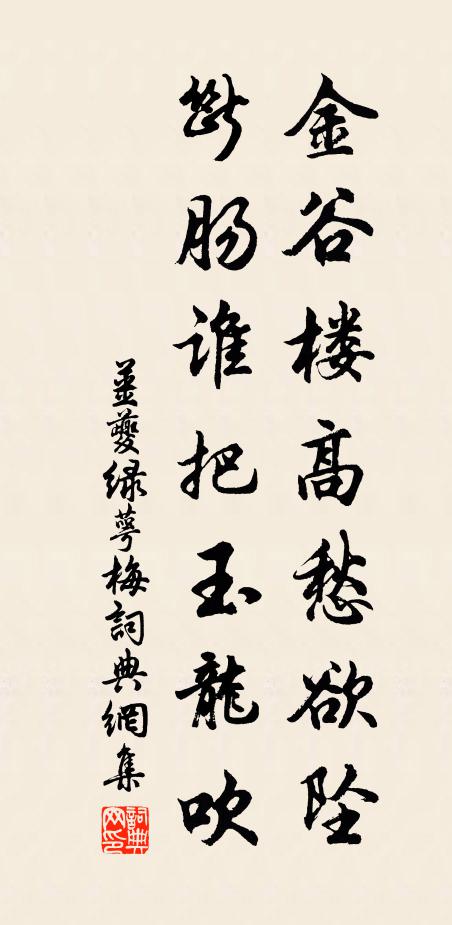 金谷楼高愁欲坠
断肠谁把玉龍吹
姜夔绿萼梅詞典網集
詞典网印